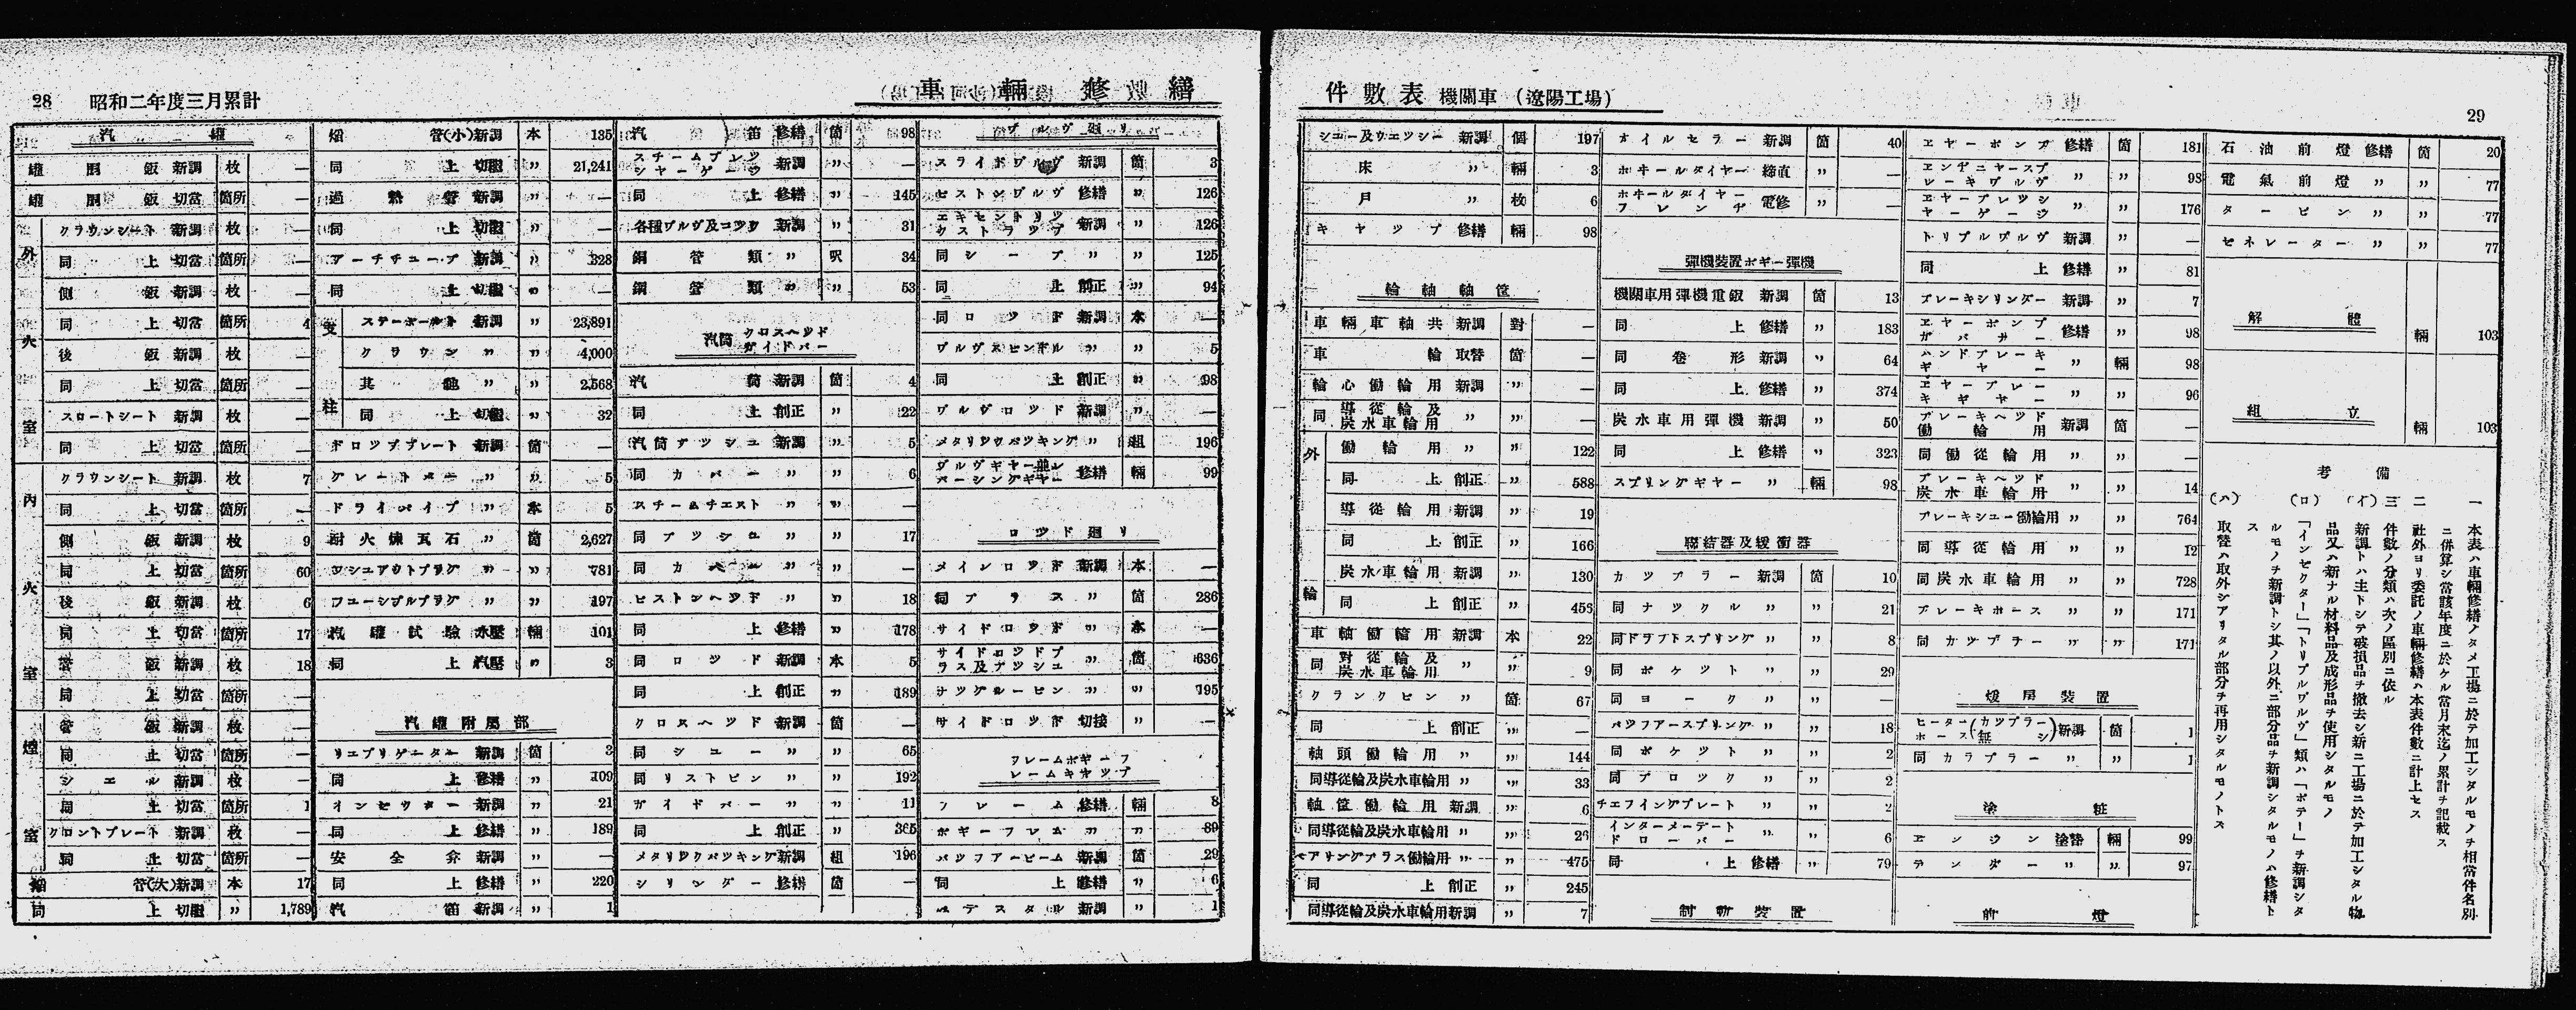 28 昭和二年度三月累計
車輛修繕
汽罐
罐胴鈑 新調 枚 —
罐胴鈑 切當 箇所 —
外火室
クラウンシート 新調 枚 —
同上 切當 箇所 —
側鈑 新調 枚 —
同上 切當 箇所 4
後鈑 新調 枚 —
同上 切當 箇所 —
スロートシート 新調 枚 —
同上 切當 箇所 —
內火室
クラウンシート 新調 枚 7
同上 切當 箇所 —
側鈑 新調 枚 9
同上 切當 箇所 60
後鈑 新調 枚 6
同上 切當 箇所 17
管鈑 新調 枚 18
同上 切當 箇所 —
煙室
管鈑 新調 枚 —
同上 切當 箇所 —
シエル 新調 枚 —
同上 切當 箇所 1
フロントプレート 新調 枚 —
同上 切當 箇所 —
焰管(大) 新調 本 17
同上 切䏰 〃 1,789
焰管(小) 新調 本 135
同上 〃 21,241
過熱管 新調 〃 —
同上 〃 —
アーチチューブ 新調 〃 328
同上 〃 —
支柱
ステーボールト 新調 〃 23,891
クラウン 〃 〃 4,000
其他 〃 〃 2,568
同上 〃 32
ドロツププレート 新調 箇 —
グレートバー 〃 〃 5
ドライパイプ 〃 本 5
耐火煉瓦石 〃 箇 2,627
ワシユアウトプラグ 〃 〃 781
フユーシブルプラグ 〃 〃 197
汽罐試驗 水壓 輛 101
同上 汽壓 〃 3
汽罐附屬部
リユブリゲーター 新調 箇 3
同上 修繕 〃 109
インゼクター 新調 〃 21
同上 修繕 〃 189
安全弁 新調 〃 —
同上 修繕 〃 220
汽笛 新調 〃 1
汽笛 修繕 箇 98
スチームプレツシヤーゲージ 新調 〃 —
同上 修繕 〃 145
各種ワルヴ及コツク 新調 〃 31
銅管類 〃 呎 34
鋼管類 〃 〃 53
汽筒 クロスヘツド ガイドバー
汽筒 新調 箇 4
同上 創正 〃 22
汽筒ブツシユ 新調 〃 5
同カバー 〃 〃 6
スチームチエスト 〃 〃 —
同ブツシユ 〃 〃 17
同カバー 〃 〃 —
ピストンヘツド 〃 〃 18
同上 修繕 〃 178
同ロツド 新調 本 5
同上 創正 〃 189
クロスヘツド 新調 箇 —
同シユー 〃 〃 65
同リストピン 〃 〃 192
ガイドバー 〃 〃 11
同上 創正 〃 365
メタリツクパツキング 新調 組 196
シリンダー 修繕 箇 —
ワルヴ廻リ
スライドワルヴ 新調 箇 3
ピストンワルヴ 修繕 〃 126
エキセントリツクストラツプ 新調 〃 126
同シーブ 〃 〃 125
同上 創正 〃 94
同ロツド 新調 本 —
ワルヴスピンドル 〃 〃 5
同上 創正 〃 98
ワルヴロツド 新調 〃 —
メタリツクパツキング 〃 組 196
ワルヴギヤー並レバーシングギヤー 修繕 輛 99
ロツド廻リ
メインロツド 新調 本 —
同ブラス 〃 箇 286
サイドロツド 〃 本 —
サイドロツドブラス及ブツシユ 〃 箇 636
ナツクルーピン 〃 〃 195
サイドロツド 切接 〃 —
フレームボギーフレームキヤツブ
フレーム 修繕 輛 8
ボギーフレム 〃 〃 89
バツフアービーム 新調 箇 29
同上 修繕 〃 6
ペデスタル 新調 〃 1
件數表 機關車 (遼陽工場)
29
シユー及ウエツシー 新調 箇 197
床 〃 輛 3
戶 〃 枚 6
キヤツブ 修繕 輛 98
輪軸軸筐
車輛車軸共 新調 對 —
車輪 取替 箇 —
輪心働輪用 新調 〃 —
同導從輪及炭水車輪用 〃 〃 —
外輪
働輪用 〃 〃 122
同上 創正 〃 588
導從輪用 新調 〃 19
同上 創正 〃 166
炭水車輪用 新調 〃 130
同上 創正 〃 456
車軸働輪用 新調 本 22
同對從輪及炭水車輪用 〃 〃 9
クランクピン 〃 箇 67
同上 創正 〃 —
軸頭働輪用 〃 〃 144
同導從輪及炭水車輪用 〃 〃 33
軸筐働輪用 新調 〃 6
同導從輪及炭水車輪用 〃 〃 26
アリングブラス働輪用 〃 〃 475
同上 創正 〃 245
同導從輪及炭水車輪用 新調 〃 7
オイルセラー 新調 箇 40
ホヰールタイヤー 締直 〃 —
ホヰールタイヤーフレンヂ 電修 〃 —
彈機裝置ボギー彈機
機關車用彈機重鈑 新調 箇 13
同上 修繕 〃 183
同卷形 新調 〃 64
同上 修繕 〃 374
炭水車用彈機 新調 〃 50
同上 修繕 〃 323
スプリングギヤー 〃 輛 98
聯結器及緩衝器
カツプラー 新調 箇 10
同ナツクル 〃 〃 21
同ドラフトスプリング 〃 〃 8
同ポケツト 〃 〃 29
同ヨーク 〃 〃 —
バツフアースプリング 〃 〃 18
同ポケツト 〃 〃 2
同ブロツク 〃 〃 2
チエフイングプレート 〃 〃 2
インターメーデートドローバー 〃 〃 6
同上 修繕 〃 79
制動裝置
エヤーポンプ 修繕 箇 181
エンヂニヤースブレーキワルヴ 〃 〃 98
エヤープレツシヤーゲージ 〃 〃 176
トリプルワルヴ 新調 〃 —
同上 修繕 〃 81
ブレーキシリンダー 新調 〃 7
エヤーポンプガバナー 修繕 〃 98
ハンドブレーキギヤー 〃 輛 98
エヤーブレーキギヤー 〃 〃 96
ブレーキヘツド働輪用 新調 箇 —
同働從輪用 〃 〃 —
ブレーキヘツド炭水車輪用 〃 〃 14
ブレーキシユー働輪用 〃 〃 764
同導從輪用 〃 〃 12
同炭水車輪用 〃 〃 728
ブレーキホース 〃 〃 171
同カツプラー 〃 〃 171
煖房裝置
ヒーターホース(カツプラー無シ) 新調 箇 1
同カプラー 〃 〃 1
塗粧
エンジン 塗替 輛 99
テンダー 〃 〃 97
前燈
石油前燈 修繕 箇 20
電氣前燈 〃 〃 77
タービン 〃 〃 77
ゼネレーター 〃 〃 77
解體 輛 103
組立 輛 103
備考
一 本表ハ車輛修繕ノタメ工場ニ於テ加工シタルモノヲ相當件名別
ニ併算シ當該年度ニ於ケル當月末迄ノ累計ヲ記載ス
二 社外ヨリ委託ノ車輛修繕ハ本表件數ニ計上セス
三 件數ノ分類ハ次ノ區別ニ依ル
(イ) 新調トハ主トシテ破損品ヲ撤去シ新ニ工場ニ於テ加工シタル物
品又ハ新ナル材料品及成形品ヲ使用シタルモノ
(ロ) 「インゼクター」「トリプルワルヴ」類ハ「ボデー」ヲ新調シタ
ルモノヲ新調トシ其ノ以外ニ部分品ヲ新調シタルモノハ修繕ト
ス
(ハ) 取替ハ取外シアリタル部分ヲ再用シタルモノトス